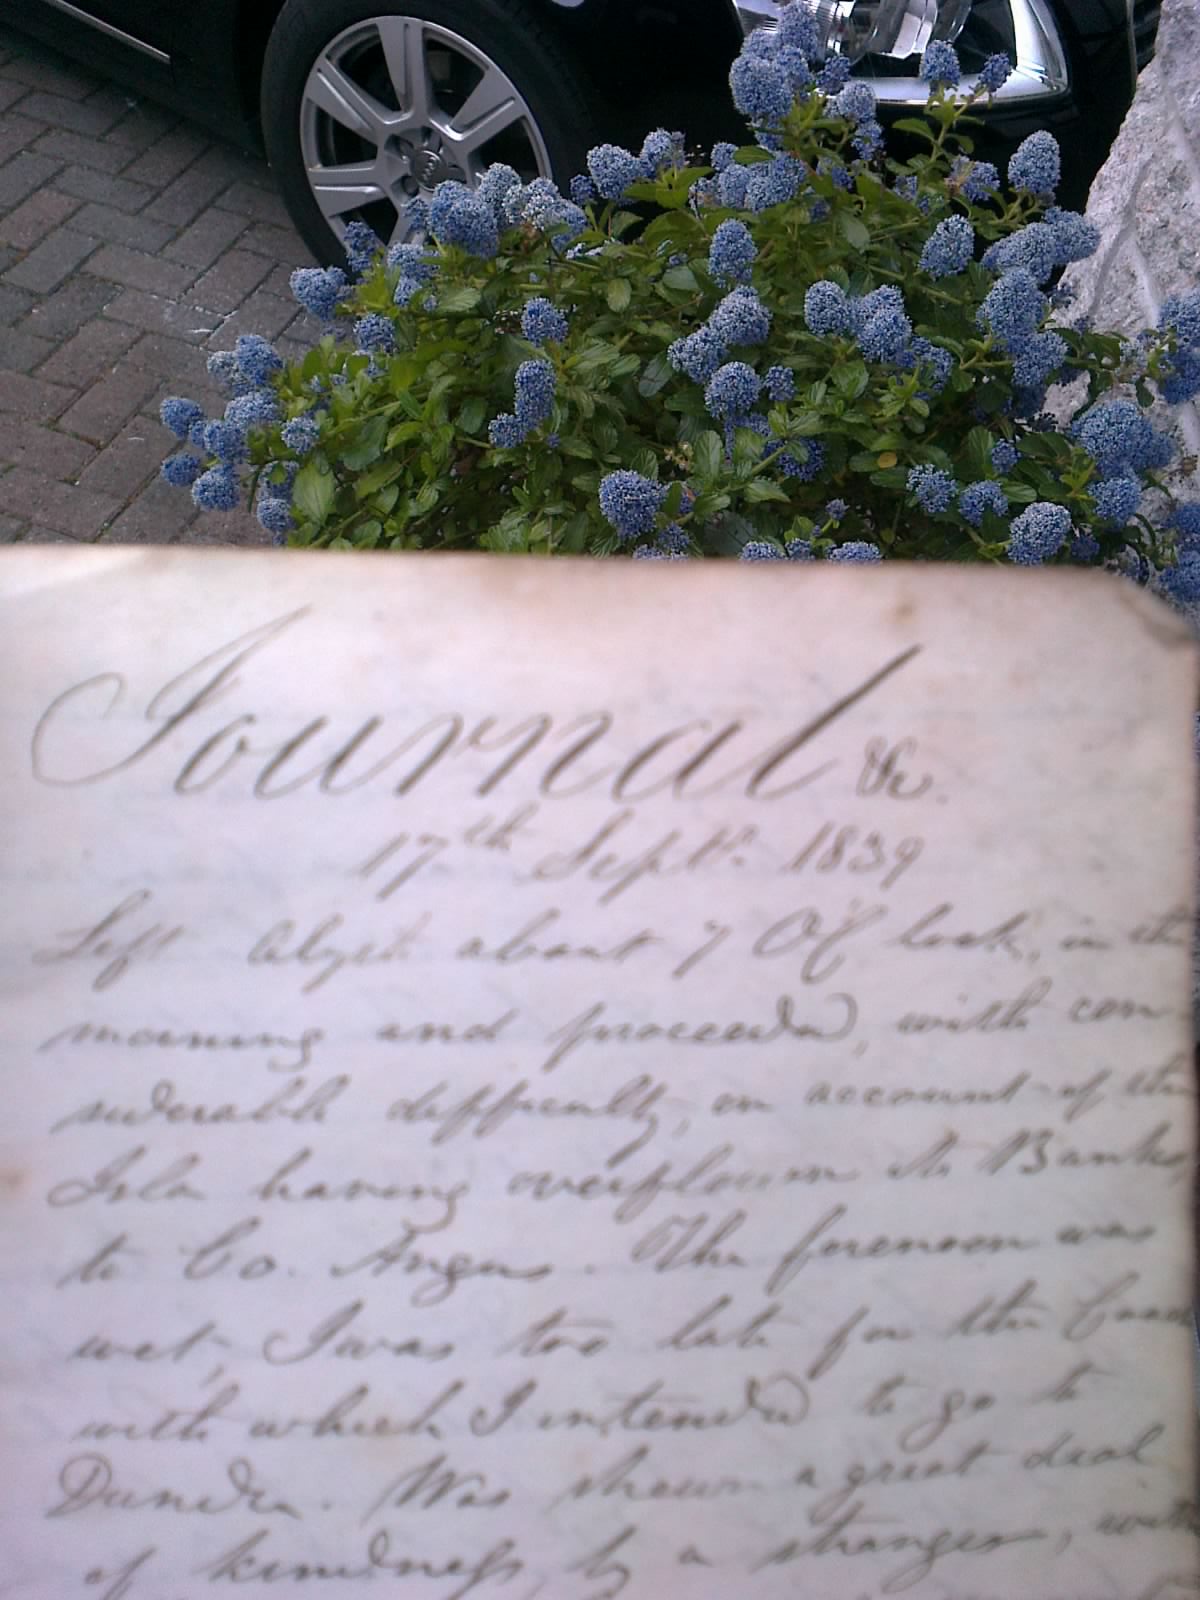 Journal &c.
17th Septr. 1839
Left Alyth about 7 O'Clock, in the
morning and proceeded, with con
siderable difficulty, on account of the
Isla having overflown its Banks,
to Co. Angus. The forenoon was
wet, I was too late for the Coach
with which I intended to go to
Dundee. Was shewn a great deal
of kindness, by a stranger, with